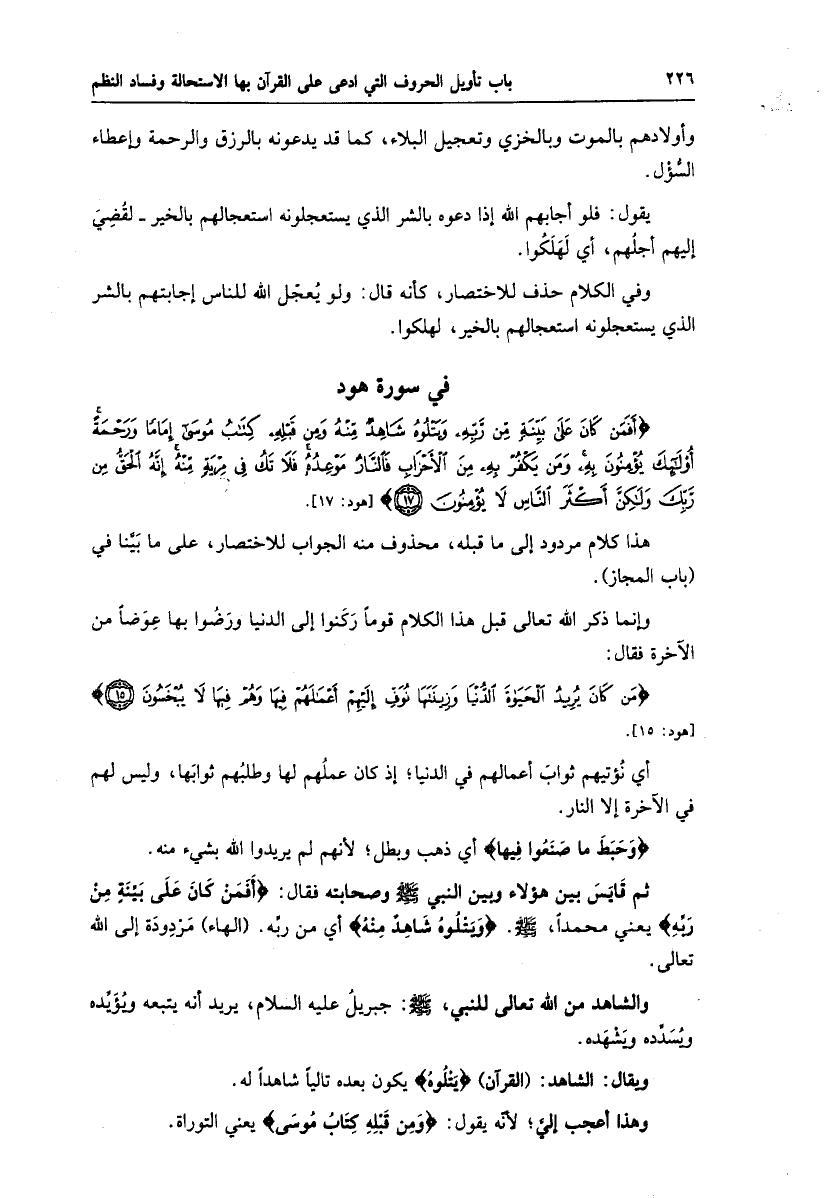 ٢٢٦ باب تأويل الحروف التي ادعى على القرآن بها الاستحالة وفساد النظم
وأولادهم بالموت وبالخزي وتعجيل البلاء، كما قد يدعونه بالرزق والرحمة وإعطاء
السُّؤْل.
يقول: فلو أجابهم الله إذا دعوه بالشر الذي يستعجلونه استعجالهم بالخير ـ لقُضِيَ
إليهم أجلُهم، أي لَهَلَكُوا.
وفي الكلام حذف للاختصار، كأنه قال: ولو يُعجّل الله للناس إجابتهم بالشر
الذي يستعجلونه استعجالهم بالخير، لهلكوا.
في سورة هود
﴿أَفَمَن كَانَ عَلَىٰ بَيِّنَةٍ مِّن رَّبِّهِۦ وَيَتْلُوهُ شَاهِدٌ مِّنْهُ وَمِن قَبْلِهِۦ كِتَٰبُ مُوسَىٰٓ إِمَامًا وَرَحْمَةًۚ
أُوْلَٰٓئِكَ يُؤْمِنُونَ بِهِۦۚ وَمَن يَكْفُرْ بِهِۦ مِنَ الْأَحْزَابِ فَالنَّارُ مَوْعِدُهُۥۚ فَلَا تَكُ فِى مِرْيَةٍ مِّنْهُۚ إِنَّهُ الْحَقُّ مِن
رَّبِّكَ وَلَٰكِنَّ أَكْثَرَ النَّاسِ لَا يُؤْمِنُونَ ۝١٧﴾ [هود: ١٧].
هذا كلام مردود إلى ما قبله، محذوف منه الجواب للاختصار، على ما بَيَّنا في
(باب المجاز).
وإنما ذكر الله تعالى قبل هذا الكلام قوماً رَكَنوا إلى الدنيا ورَضُوا بها عِوَضاً من
الآخرة فقال:
﴿مَن كَانَ يُرِيدُ الْحَيَوٰةَ الدُّنْيَا وَزِينَتَهَا نُوَفِّ إِلَيْهِمْ أَعْمَٰلَهُمْ فِيهَا وَهُمْ فِيهَا لَا يُبْخَسُونَ ۝١٥﴾
[هود: ١٥].
أي نُؤتيهم ثوابَ أعمالهم في الدنيا؛ إذ كان عملُهم لها وطلبُهم ثوابَها، وليس لهم
في الآخرة إلا النار.
﴿وَحَبَطَ ما صَنَعُوا فِيها﴾ أي ذهب وبطل؛ لأنهم لم يريدوا الله بشيء منه.
ثم قَايَسَ بين هؤلاء وبين النبي ﷺ وصحابته فقال: ﴿أَفَمَنْ كَانَ عَلَى بَيِّنَةٍ مِنْ
رَبِّهِ﴾ يعني محمداً، ﷺ. ﴿وَيَتْلُوهُ شَاهِدٌ مِنْهُ﴾ أي من ربِّه. (الهاء) مَرْدودَة إلى الله
تعالى.
والشاهد من الله تعالى للنبي، ﷺ: جبريلُ عليه السلام، يريد أنه يتبعه ويُؤَيِّده
ويُسَدِّده ويَشْهَده.
ويقال: الشاهد: (القرآن) ﴿يَتْلُوهُ﴾ يكون بعده تالياً شاهداً له.
وهذا أعجب إليَّ؛ لأنّه يقول: ﴿وَمِن قَبْلِهِ كِتَابُ مُوسَى﴾ يعني التوراة.